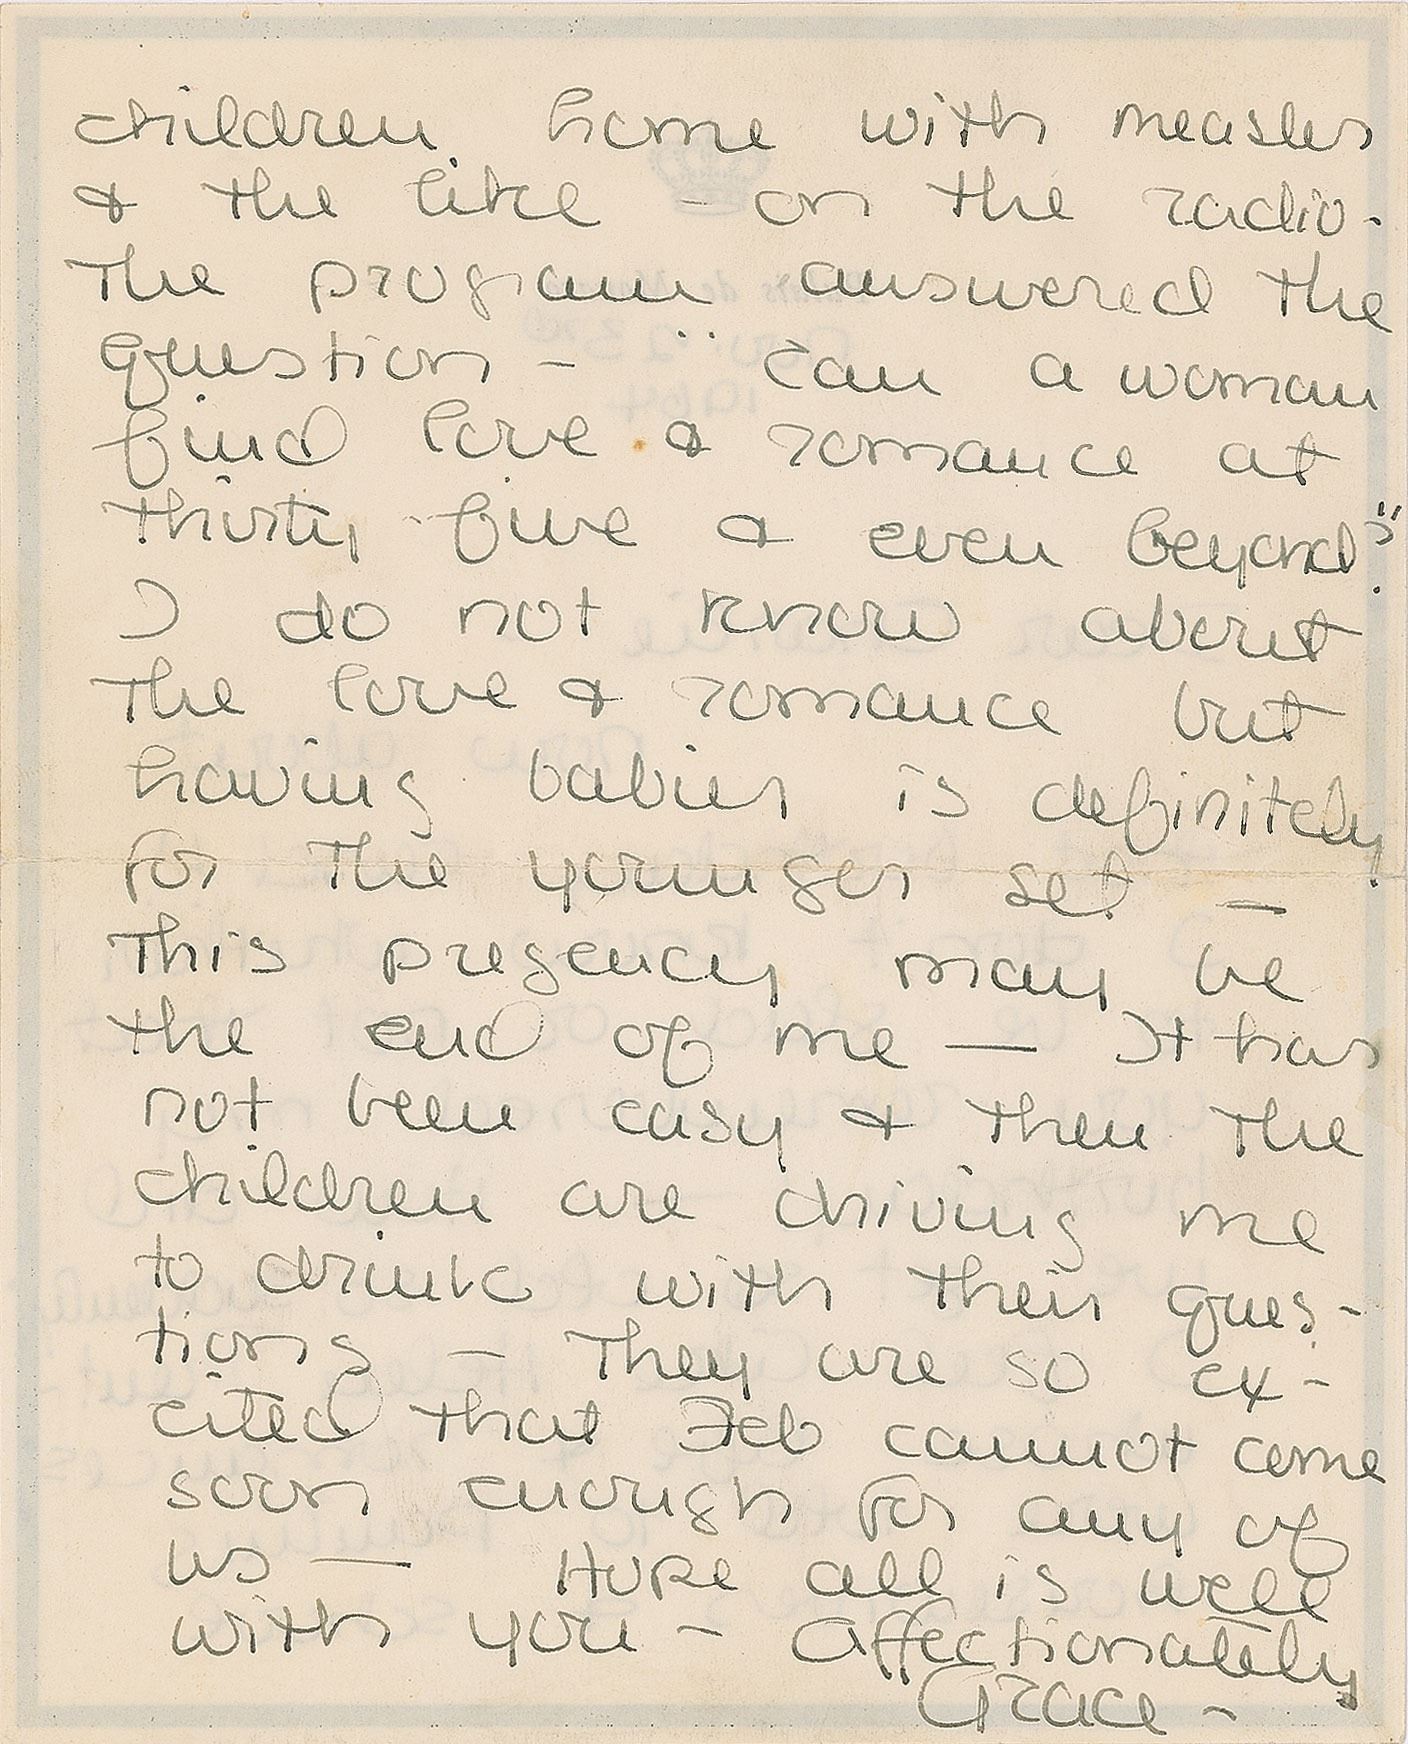 children home with measles
& the like - on the radio -
The program answered the
question - "Can a woman
find love & romance at
thirty five & even beyond?"
I do not know about
the love & romance but
having babies is definitely
for the younger set -
This pregency may be
the end of me — It has
not been easy & then the
children are driving me
to drink with their ques-
tions - They are so ex-
cited that Feb cannot come
soon enough for any of
us — Hope all is well
with you - Affectionately
Grace -